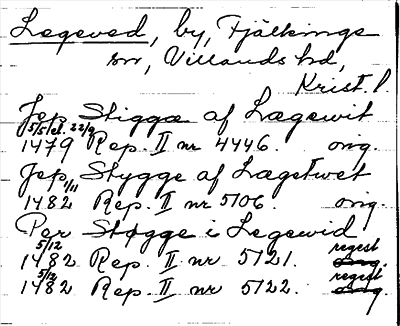 Legeved, by, Fjälkinge
sn, Villands hd,
Krist. l
Jep Stiggæ af Lægewit
5/5 el. 22/9
1479 Rep. II nr 4446. orig.
Jep Stygge af Lægetwet
1/11
1482 Rep. II nr 5106. orig.
Per Støgge i Legewid
5/12 regest
1482 Rep. II nr 5121. orig.
5/12 regest
1482 Rep. II nr 5122. orig.